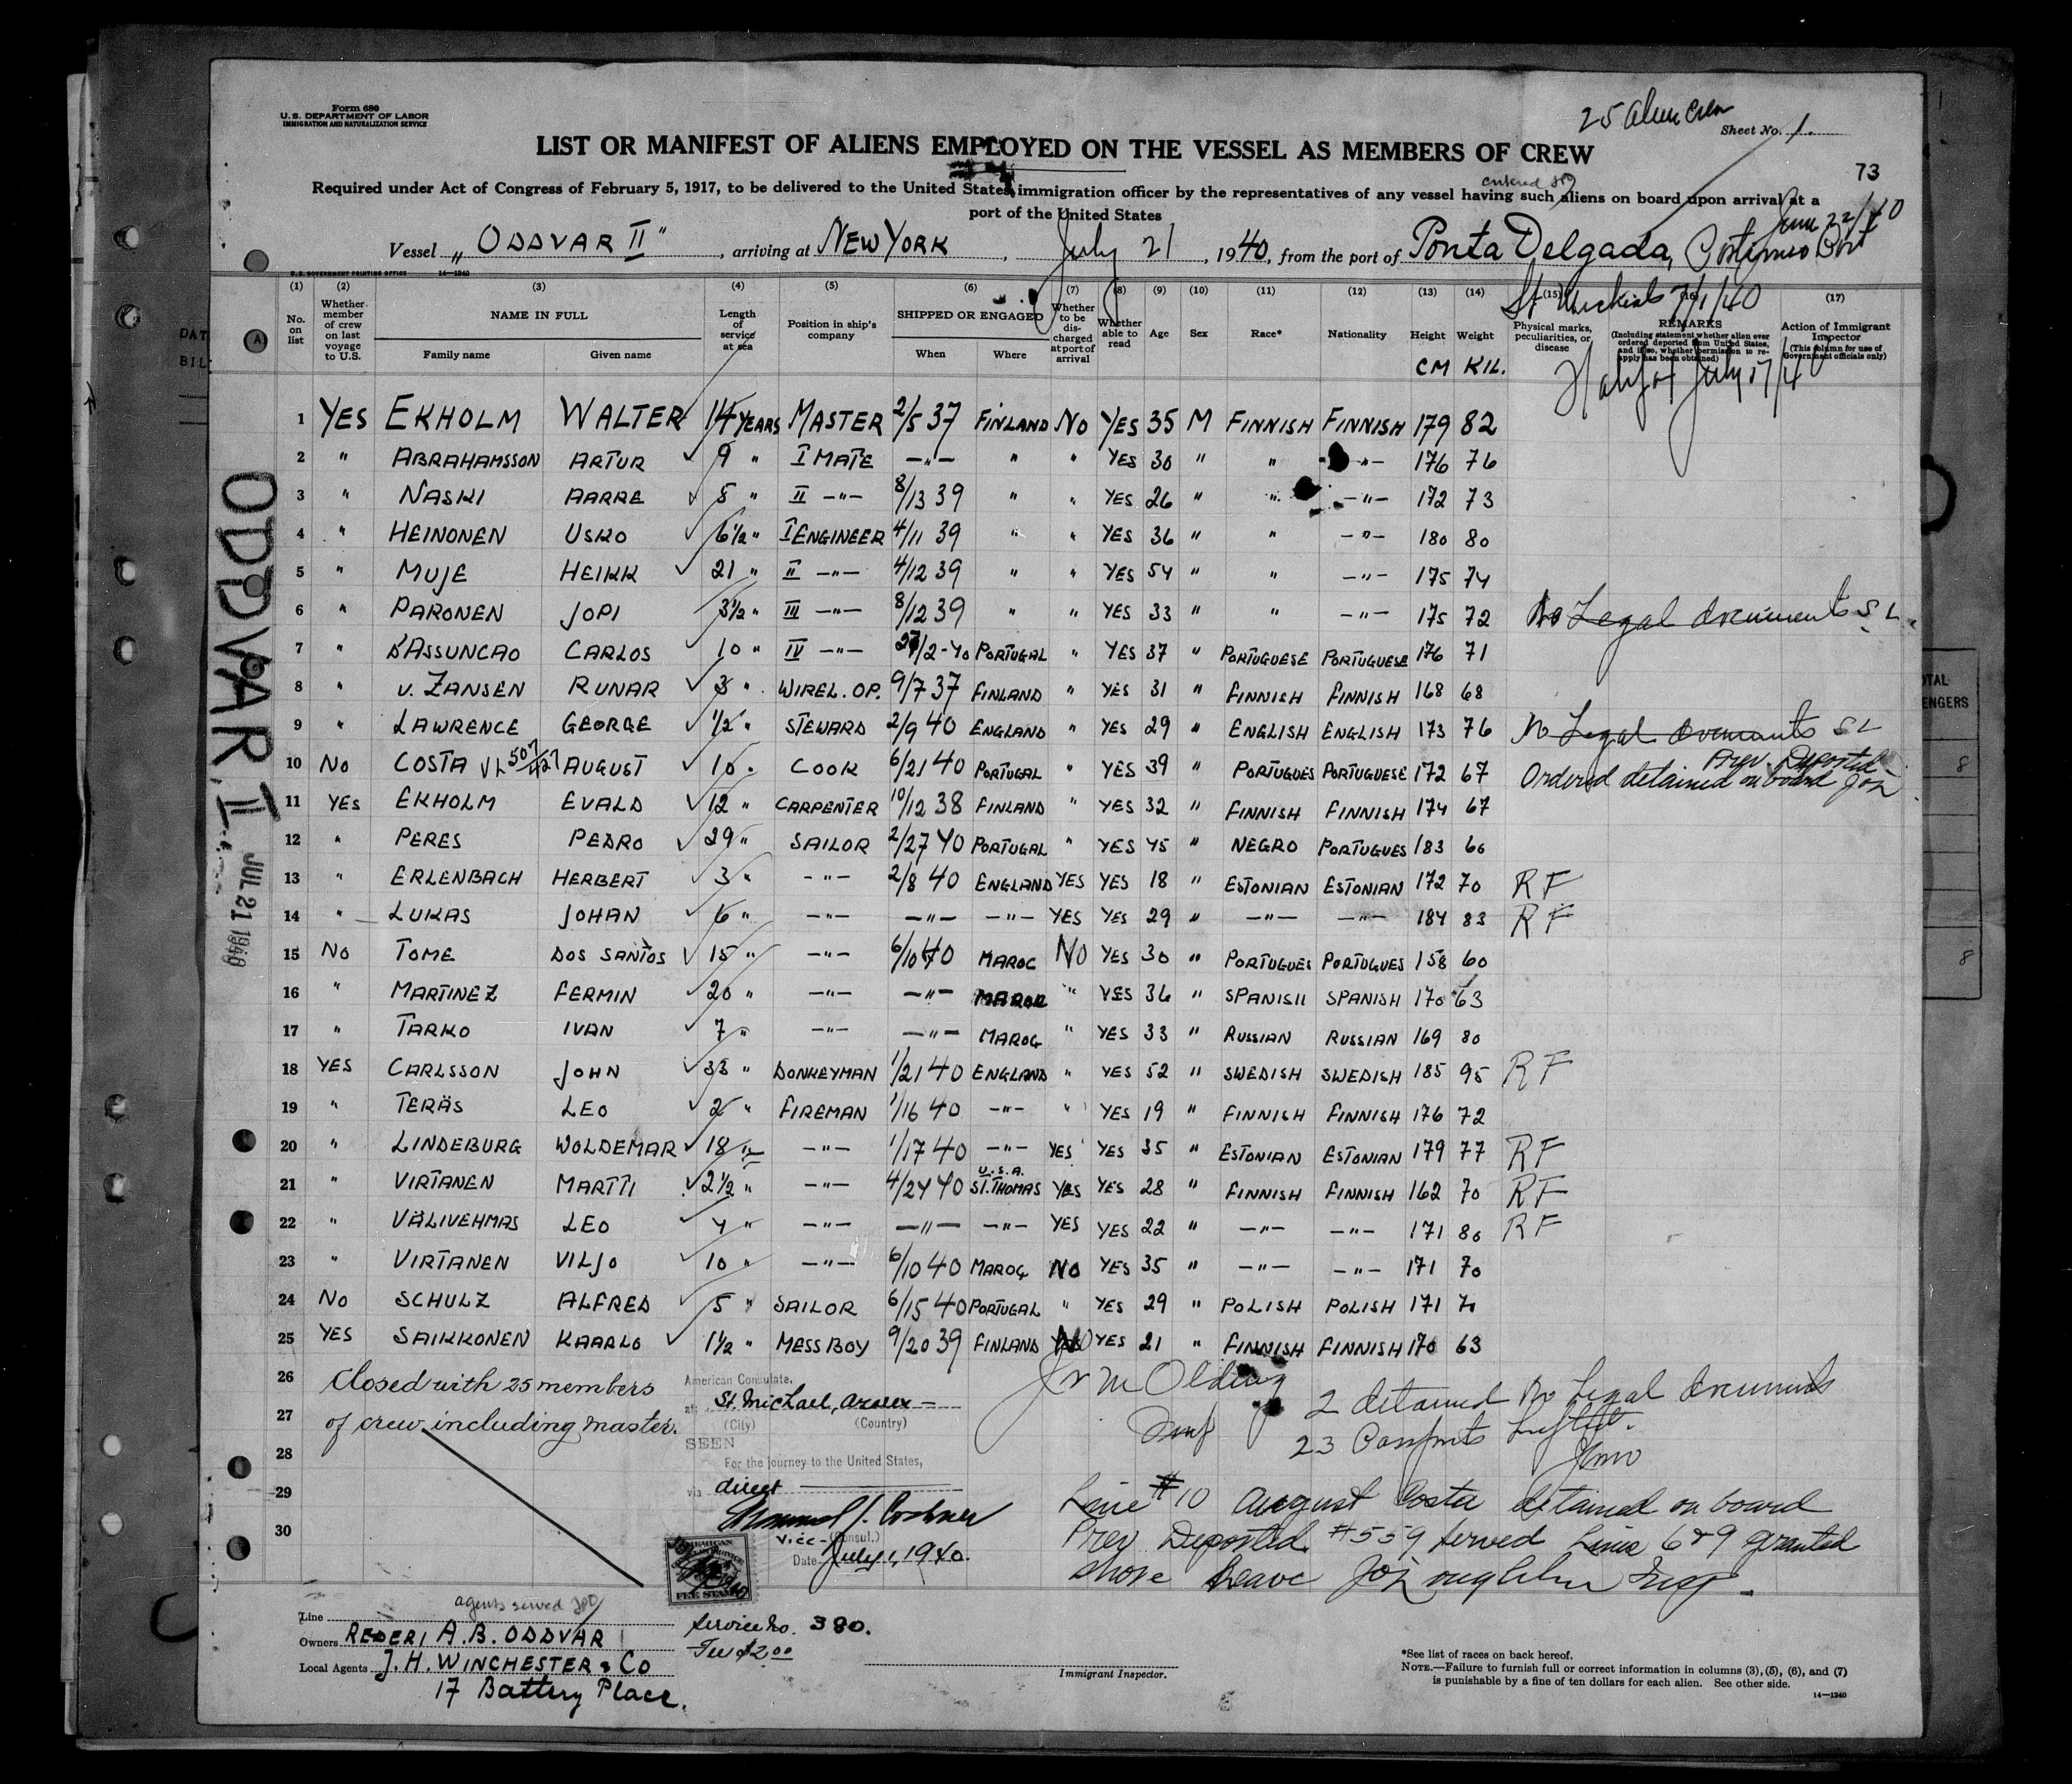 Form 680
U.S. DEPARTMENT OF LABOR
IMMIGRATION AND NATURALIZATION SERVICE
25 alien crew
Sheet No. 1.
LIST OR MANIFEST OF ALIENS EMPLOYED ON THE VESSEL AS MEMBERS OF CREW
73
Required under Act of Congress of February 5, 1917, to be delivered to the United States immigration officer by the representatives of any vessel having such aliens on board upon arrival at a
port of the United States
June 22/40
Vessel „ ODDVAR II", arriving at NEW YORK, July 21, 1940, from the port of Ponta Delgada,
U.S. GOVERNMENT PRINTING OFFICE 14—1240
St Michaels 7/1/40
Halifax July 17/40
(1) (2) (3) (4) (5) (6) (7) (8) (9) (10) (11) (12) (13) (14) (15) (16) (17)
No. on list
Whether member of crew on last voyage to U.S.
NAME IN FULL
Family name Given name
Length of service at sea
Position in ship's company
SHIPPED OR ENGAGED
When Where
Whether to be discharged at port of arrival
Whether able to read
Age
Sex
Race*
Nationality
Height CM
Weight KIL.
Physical marks, peculiarities, or disease
REMARKS
(Including statement whether alien ever ordered deported from United States, and if so, whether permission to reapply has been obtained)
Action of Immigrant Inspector
(This column for use of Government officials only)
1 YES EKHOLM WALTER 14 YEARS MASTER 2/5 37 FINLAND NO YES 35 M FINNISH FINNISH 179 82
2 " ABRAHAMSSON ARTUR 9 " I MATE —"— " " YES 30 " " —"— 176 76
3 " NASKI AARRE 8 " II —"— 8/13 39 " " YES 26 " " —"— 172 73
4 " HEINONEN USKO 6½ " I ENGINEER 4/11 39 " " YES 36 " " —"— 180 80
5 " MUJE HEIKK 21 " II —"— 4/12 39 " " YES 54 " " —"— 175 74
6 " PARONEN JOPI 3½ " III —"— 8/12 39 " " YES 33 " " —"— 175 72 No Legal documents SL
7 " D'ASSUNCAO CARLOS 10 " IV —"— 27/2-40 PORTUGAL " YES 37 " PORTUGUESE PORTUGUESE 176 71
8 " v. ZANSEN RUNAR 3 " WIREL. OP. 9/7 37 FINLAND " YES 31 " FINNISH FINNISH 168 68
9 " LAWRENCE GEORGE ½ " STEWARD 2/9 40 ENGLAND " YES 29 " ENGLISH ENGLISH 173 76 No Legal documents SL
10 NO COSTA 507/427 AUGUST 10 " COOK 6/21 40 PORTUGAL " YES 39 " PORTUGUES PORTUGUESE 172 67 Prev. Deported Ordered detained on board
11 YES EKHOLM EVALD 12 " CARPENTER 10/12 38 FINLAND " YES 32 " FINNISH FINNISH 174 67
12 " PERES PEDRO 29 " SAILOR 2/27 40 PORTUGAL " YES 45 " NEGRO PORTUGUES 183 60
13 " ERLENBACH HERBERT 3 " —"— 2/8 40 ENGLAND YES YES 18 " ESTONIAN ESTONIAN 172 70 RF
14 " LUKAS JOHAN 6 " —"— —"— —"— YES YES 29 " —"— —"— 184 83 RF
15 NO TOME DOS SANTOS 15 " —"— 6/10 40 MAROC NO YES 30 " PORTUGUES PORTUGUES 158 60
16 " MARTINEZ FERMIN 20 " —"— —"— MAROC " YES 36 " SPANISH SPANISH 170 63
17 " TARKO IVAN 7 " —"— —"— MAROC " YES 33 " RUSSIAN RUSSIAN 169 80
18 YES CARLSSON JOHN 33 " DONKEYMAN 1/21 40 ENGLAND " YES 52 " SWEDISH SWEDISH 185 95 RF
19 " TERÄS LEO 2 " FIREMAN 1/16 40 —"— " YES 19 " FINNISH FINNISH 176 72
20 " LINDEBURG WOLDEMAR 18 " —"— 1/17 40 —"— YES YES 35 " ESTONIAN ESTONIAN 179 77 RF
21 " VIRTANEN MARTTI 2½ " —"— 4/24 40 U.S.A. ST. THOMAS YES YES 28 " FINNISH FINNISH 162 70 RF
22 " VÄLIVEHMAS LEO 4 " —"— —"— —"— YES YES 22 " —"— —"— 171 80 RF
23 " VIRTANEN VILJO 10 " —"— 6/10 40 MAROC NO YES 35 " —"— —"— 171 70
24 NO SCHULZ ALFRED 5 " SAILOR 6/15 40 PORTUGAL " YES 29 " POLISH POLISH 171 71
25 YES SAIKKONEN KAARLO 1½ " MESSBOY 9/20 39 FINLAND NO YES 21 " FINNISH FINNISH 170 63
26 closed with 25 members
27 of crew including master.
28
29
30
American Consulate,
at St. Michael, Azores
(City) (Country)
SEEN
For the journey to the United States,
via direct
Vice-(Consul.)
Date July 1, 1940.
2 detained No Legal documents
23 Passports Lifted.
Line #10 August Costa detained on board
Prev Deported. #559 served Line 6 & 9 granted
shore Leave
ODDVAR II
JUL 21 1940
agents served
Line
Owners REDERI A.B. ODDVAR
Local Agents J.H. WINCHESTER & CO
17 Battery Place.
Service No. 380.
Fee $2.00
Immigrant Inspector.
*See list of races on back hereof.
NOTE.—Failure to furnish full or correct information in columns (3), (5), (6), and (7)
is punishable by a fine of ten dollars for each alien. See other side.
14—1240